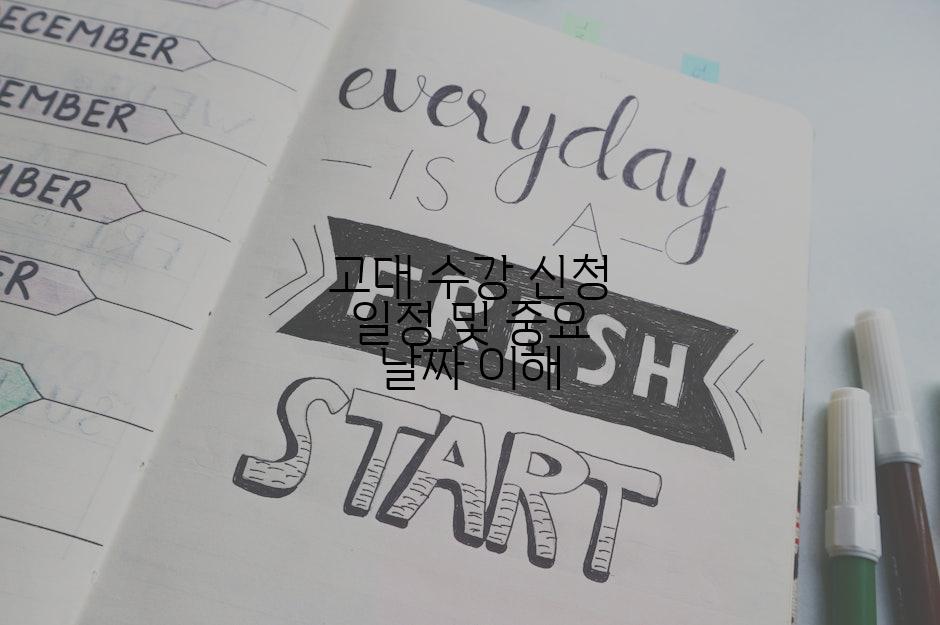 ECEMBER
EMBER
MBER
ER
everyday
IS
A
FRESH
START
고대 수강 신청
일정 및 중요
날짜 이해